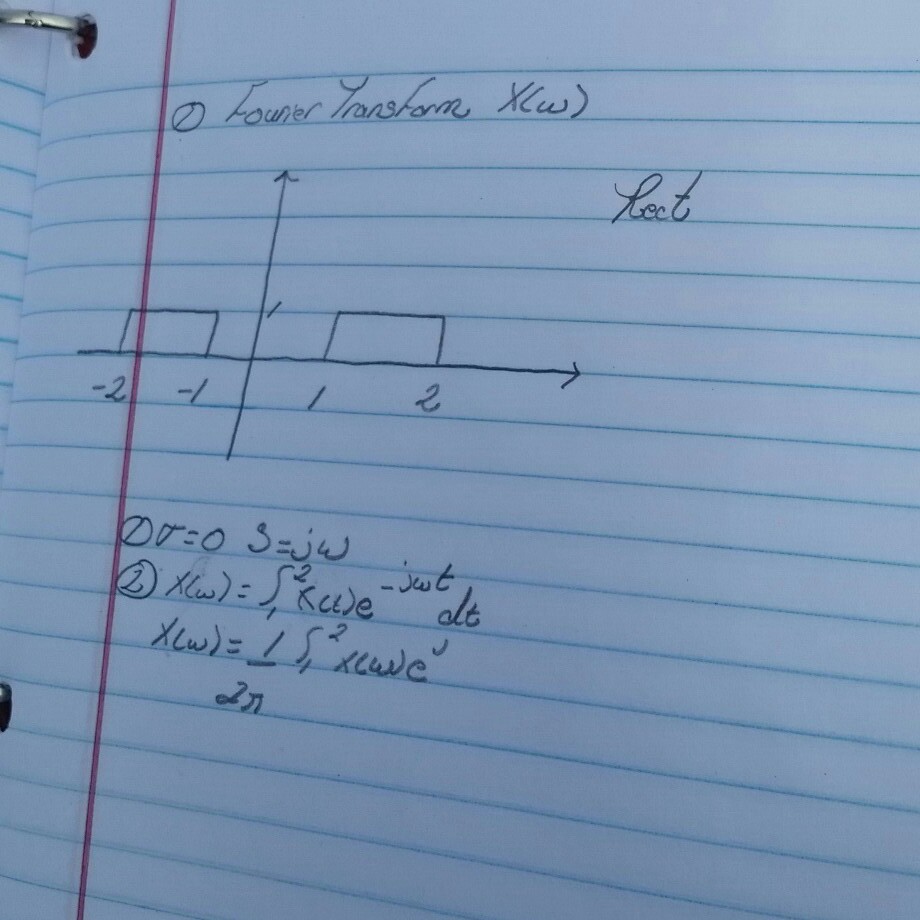 ① Fourier Transform X(ω)
Rect
1
-2 -1 1 2
① σ=0 S=jω
② X(ω) = ∫₁² x(t)e^-jωt dt
X(ω) = 1/2π ∫₁² x(ω)e^j